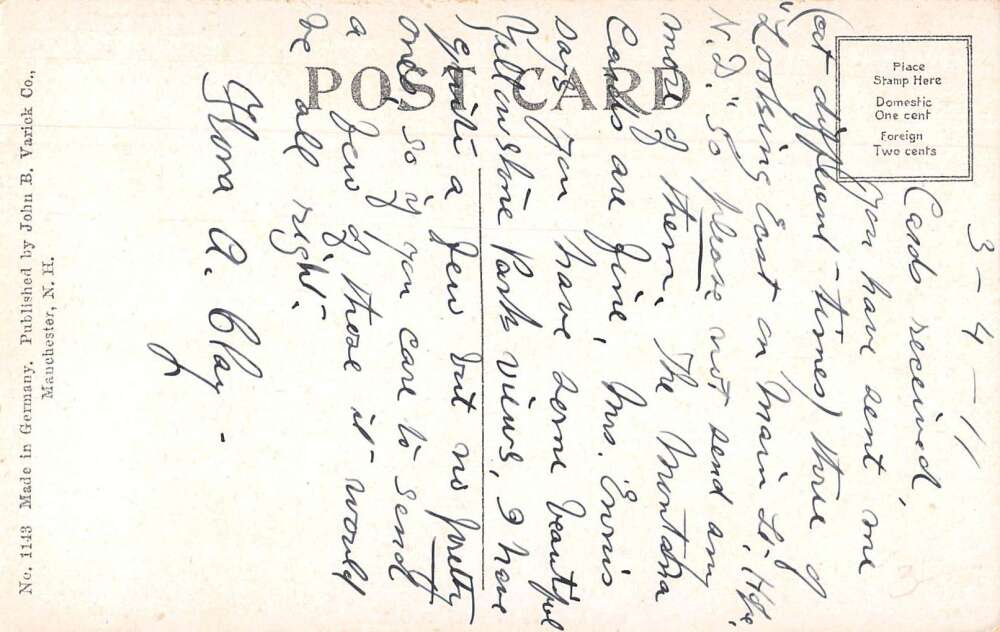 3-4-11
Cards received,
you have sent me
(at different times) three of
"Looking East on Main St.
N.D." so please not send any
more of them. The Montana
Cards are fine, Mrs.
says you have some beautiful
Yellowstone Park views, I have
quite a few but no pretty
ones, so if you care to send
a few of those it would
be all right.
Flora A. Clay.
POST CARD
Place
Stamp Here
Domestic
One cent
Foreign
Two cents
No. 1143 Made in Germany. Published by John B. Varick Co.,
Manchester, N. H.
3